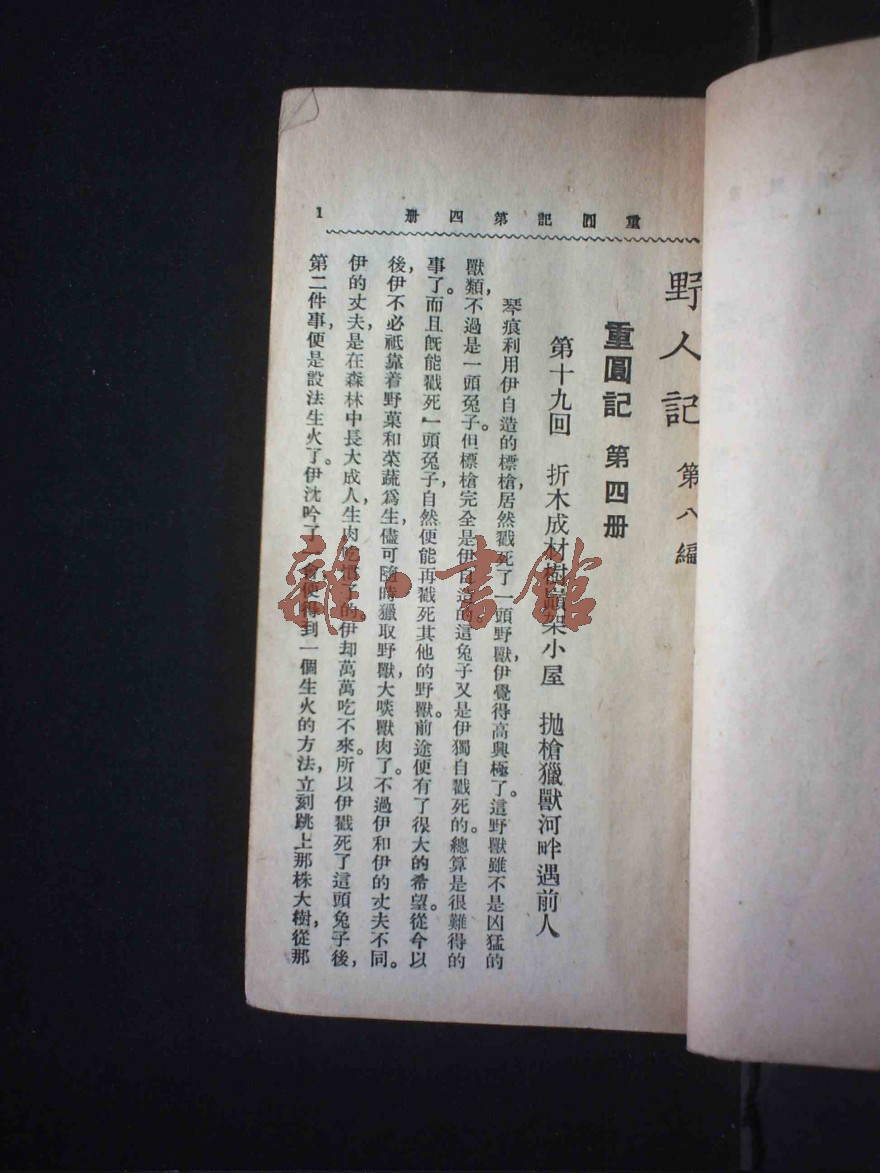 重圓記第四册
1
野人記 第八編
重圓記 第四册
第十九回 折木成材樹巔架小屋 拋槍獵獸河畔遇前人
琴痕利用伊自造的標槍，居然戳死了一頭野獸，伊覺得高興極了。這野獸雖不是凶猛的
獸類，不過是一頭兔子。但標槍完全是伊自造的，這兔子又是伊獨自戳死的。總算是很難得的
事了。而且既能戳死一頭兔子，自然便能再戳死其他的野獸。前途便有了很大的希望。從今以
後，伊不必祇靠着野菓和菜蔬爲生，儘可隨時獵取野獸，大啖獸肉了。不過伊和伊的丈夫不同。
伊的丈夫，是在森林中長大成人，生肉吃慣了的。伊却萬萬吃不來。所以伊戳死了這頭兔子後，
第二件事，便是設法生火了。伊沈吟了一會，便得到一個生火的方法，立刻跳上那株大樹，從那
雜·書館